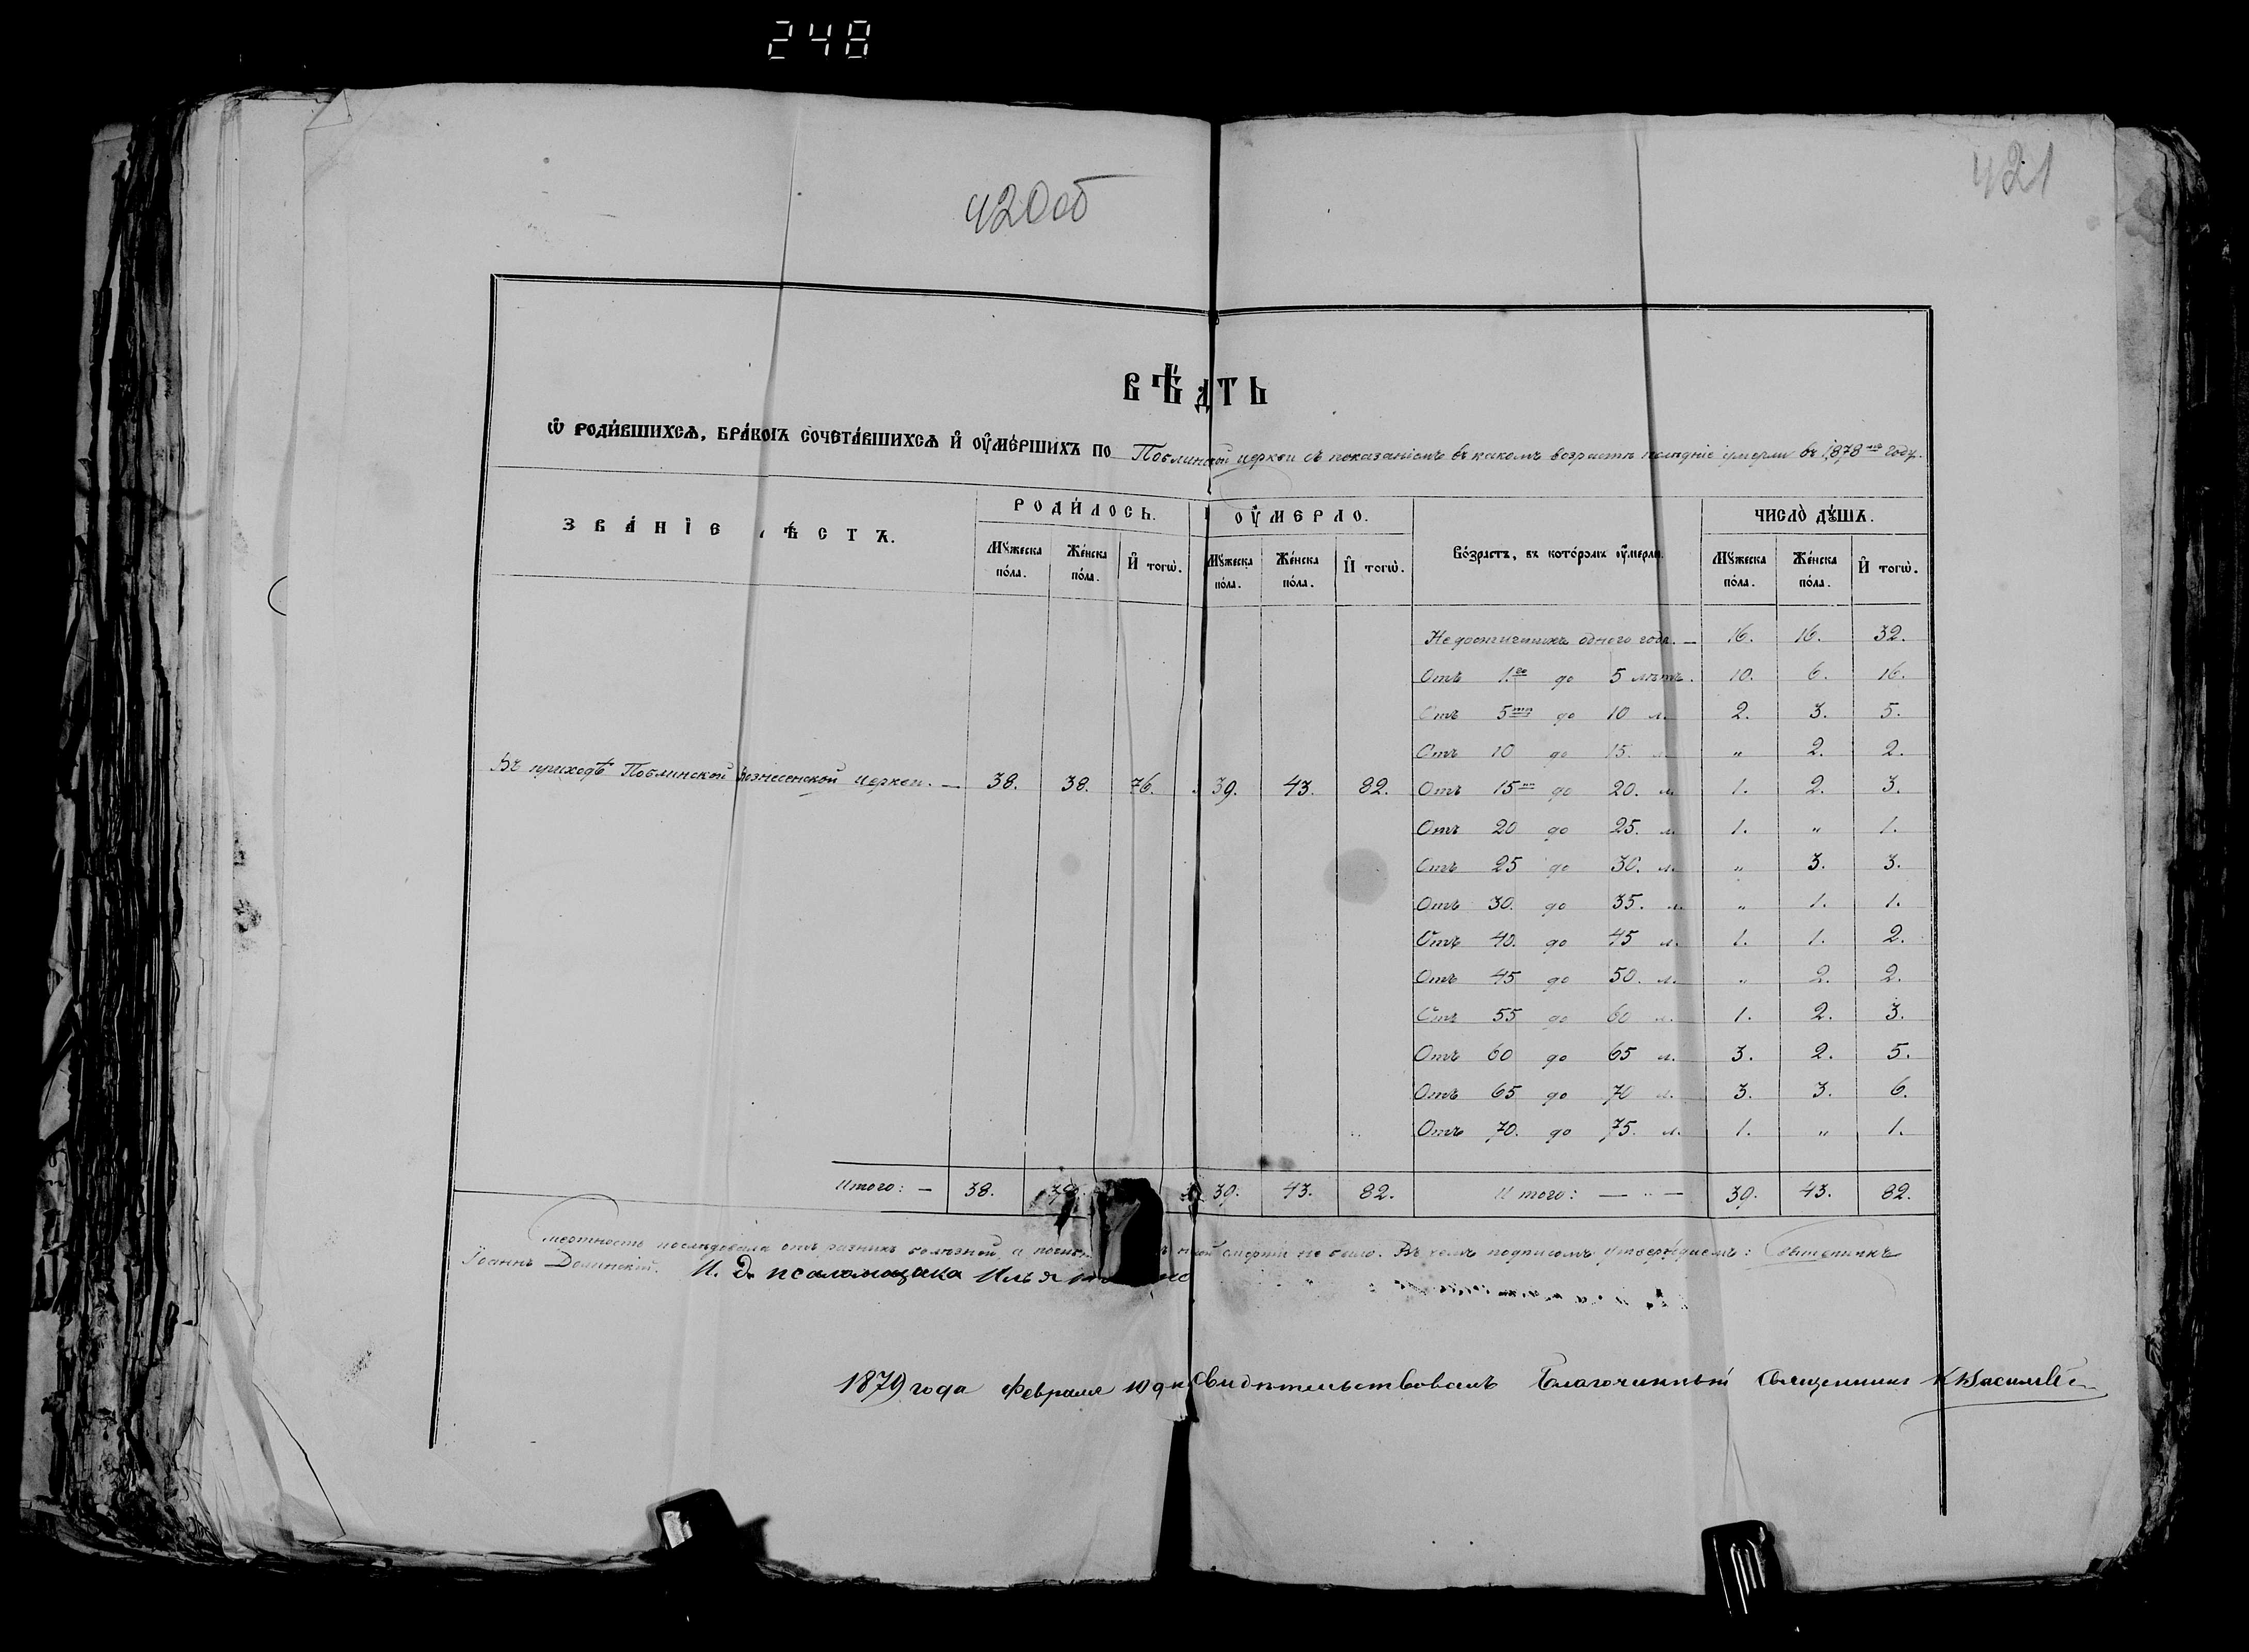 248
420об
421
ВѢ́ДѴ ТЬ
Ѡ҆ РОДИ́ВШИХСѦ, БРА́КОМЪ СОЧЕТА́ВШИХСѦ И҆ ОУ҆МЕ́РШИХЪ ПО Поблинской церкви съ показаніемъ въ какомъ возрастѣ послѣдніе умерли въ 1878мъ году.
ЗВА́НІЕ МѢ́СТЪ. РОДИ́ЛОСЬ. ОУ҆МЕРЛО. Во́зрастъ, въ кото́ромъ оу҆мерли. ЧИСЛО̀ ДꙊШЪ.
Мꙋжеска по́ла. Же́нска по́ла. И҆тогѡ̀. Мꙋжеска по́ла. Же́нска по́ла. И҆тогѡ̀. Мꙋжеска по́ла. Же́нска по́ла. И҆тогѡ̀.
Недостигшихъ одного года. — 16. 16. 32.
Отъ 1го до 5 лѣтъ. 10. 6. 16.
Отъ 5ти до 10 л. 2. 3. 5.
Отъ 10 до 15. л. „ 2. 2.
Въ приходѣ Поблинской Вознесенской церкви. — 38. 38. 76. 39. 43. 82. Отъ 15ти до 20. л. 1. 2. 3.
Отъ 20 до 25. л. 1. „ 1.
Отъ 25 до 30. л. „ 3. 3.
Отъ 30. до 35. л. „ 1. 1.
Отъ 40. до 45 л. 1. 1. 2.
Отъ 45 до 50. л. „ 2. 2.
Отъ 55 до 60 л. 1. 2. 3.
Отъ 60 до 65 л. 3. 2. 5.
Отъ 65 до 70 л. 3. 3. 6.
Отъ 70. до 75. л. 1. „ 1.
Итого: — 38. 38. 39. 43. 82. Итого: — „ — 39. 43. 82.
Смертность послѣдовала отъ разныхъ болѣзней, а смерти не было. Въ чемъ подписомъ утверждаемъ: Священникъ
Іоаннъ Долинскій. И. д. псаломщика Илья
1879 года Февраля 10 дня Свидѣтельствовалъ Благочинный Священникъ К Василев